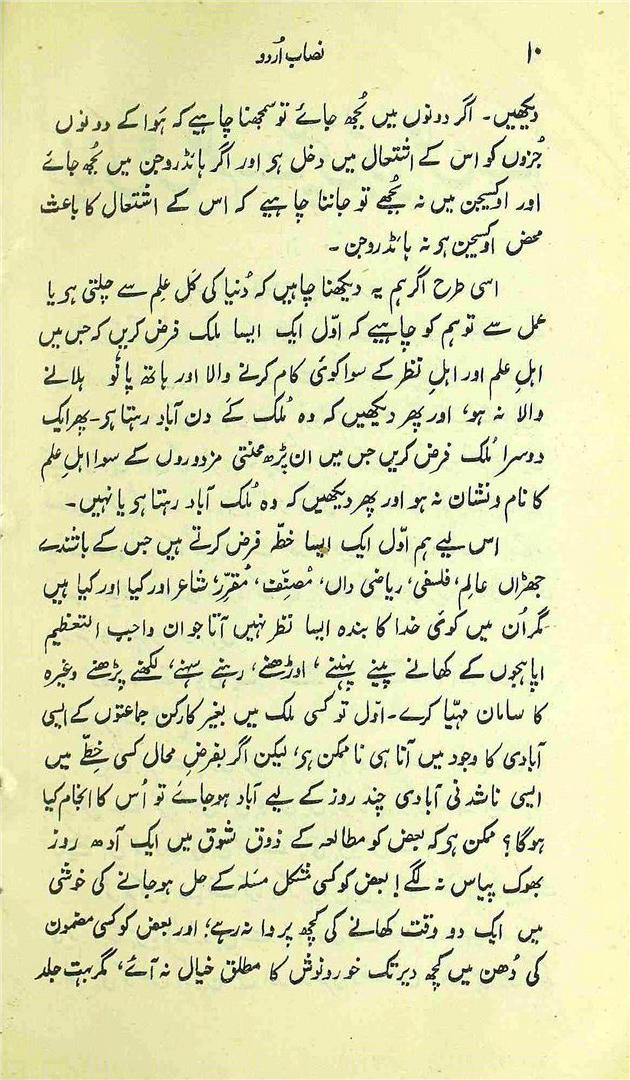 ۱۰ نصابِ اُردو
دیکھیں۔ اگر دونوں میں بُجھ جائے تو سمجھنا چاہیے کہ ہَوا کے دونوں
جُزوں کو اس کے اشتعال میں دخل ہو اور اگر ہائڈروجن میں بُجھ جائے
اور اوکسیجن میں نہ بُجھے تو جاننا چاہیے کہ اس کے اشتعال کا باعث
محض اوکسیجن ہو نہ ہائڈروجن ۔
اسی طرح اگر ہم یہ دیکھنا چاہیں کہ دُنیا کی کَل عِلم سے چلتی ہو یا
عمل سے تو ہم کو چاہیے کہ اوّل ایک ایسا ملک فرض کریں کہ جس میں
اہلِ علم اور اہلِ نظر کے سوا کوئی کام کرنے والا اور ہاتھ پاٹو ہلانے
والا نہ ہو، اور پھر دیکھیں کہ وہ مُلک کَے دن آباد رہتا ہو۔ پھر ایک
دوسرا مُلک فرض کریں جس میں ان پڑھ محنتی مزدوروں کے سوا اہلِ علم
کا نام و نشان نہ ہو اور پھر دیکھیں کہ وہ مُلک آباد رہتا ہو یا نہیں۔
اس لیے ہم اوّل ایک ایسا خطّہ فرض کرتے ہیں جس کے باشندے
جھڑاں عالِم، فلسفی، ریاضی داں، مُصنِّف، مُقرِّر، شاعر اور کیا اور کیا ہیں
مگر اُن میں کوئی خدا کا بندہ ایسا نظر نہیں آتا جو ان واجب التعظیم
اپاہجوں کے کھانے پینے پہننے، اوڑھنے، رہنے سہنے، لکھنے پڑھنے وغیرہ
کا سامان مہیّا کرے۔ اوّل تو کسی ملک میں بغیر کارکن جماعتوں کے ایسی
آبادی کا وجود میں آنا ہی ناممکن ہو، لیکن اگر بفرضِ محال کسی خِطّے میں
ایسی ناشدنی آبادی چند روز کے لیے آباد ہوجائے تو اُس کا انجام کیا
ہوگا؟ ممکن ہو کہ بعض کو مطالعہ کے ذوق شوق میں ایک آدھ روز
بھوک پیاس نہ لگے! بعض کو کسی مشکل مسئلہ کے حل ہوجانے کی خوشی
میں ایک دو وقت کھانے کی کچھ پروا نہ رہے؛ اور بعض کو کسی مضمون
کی دُھن میں کچھ دیر تک خور و نوش کا مطلق خیال نہ آئے، مگر بہت جلد